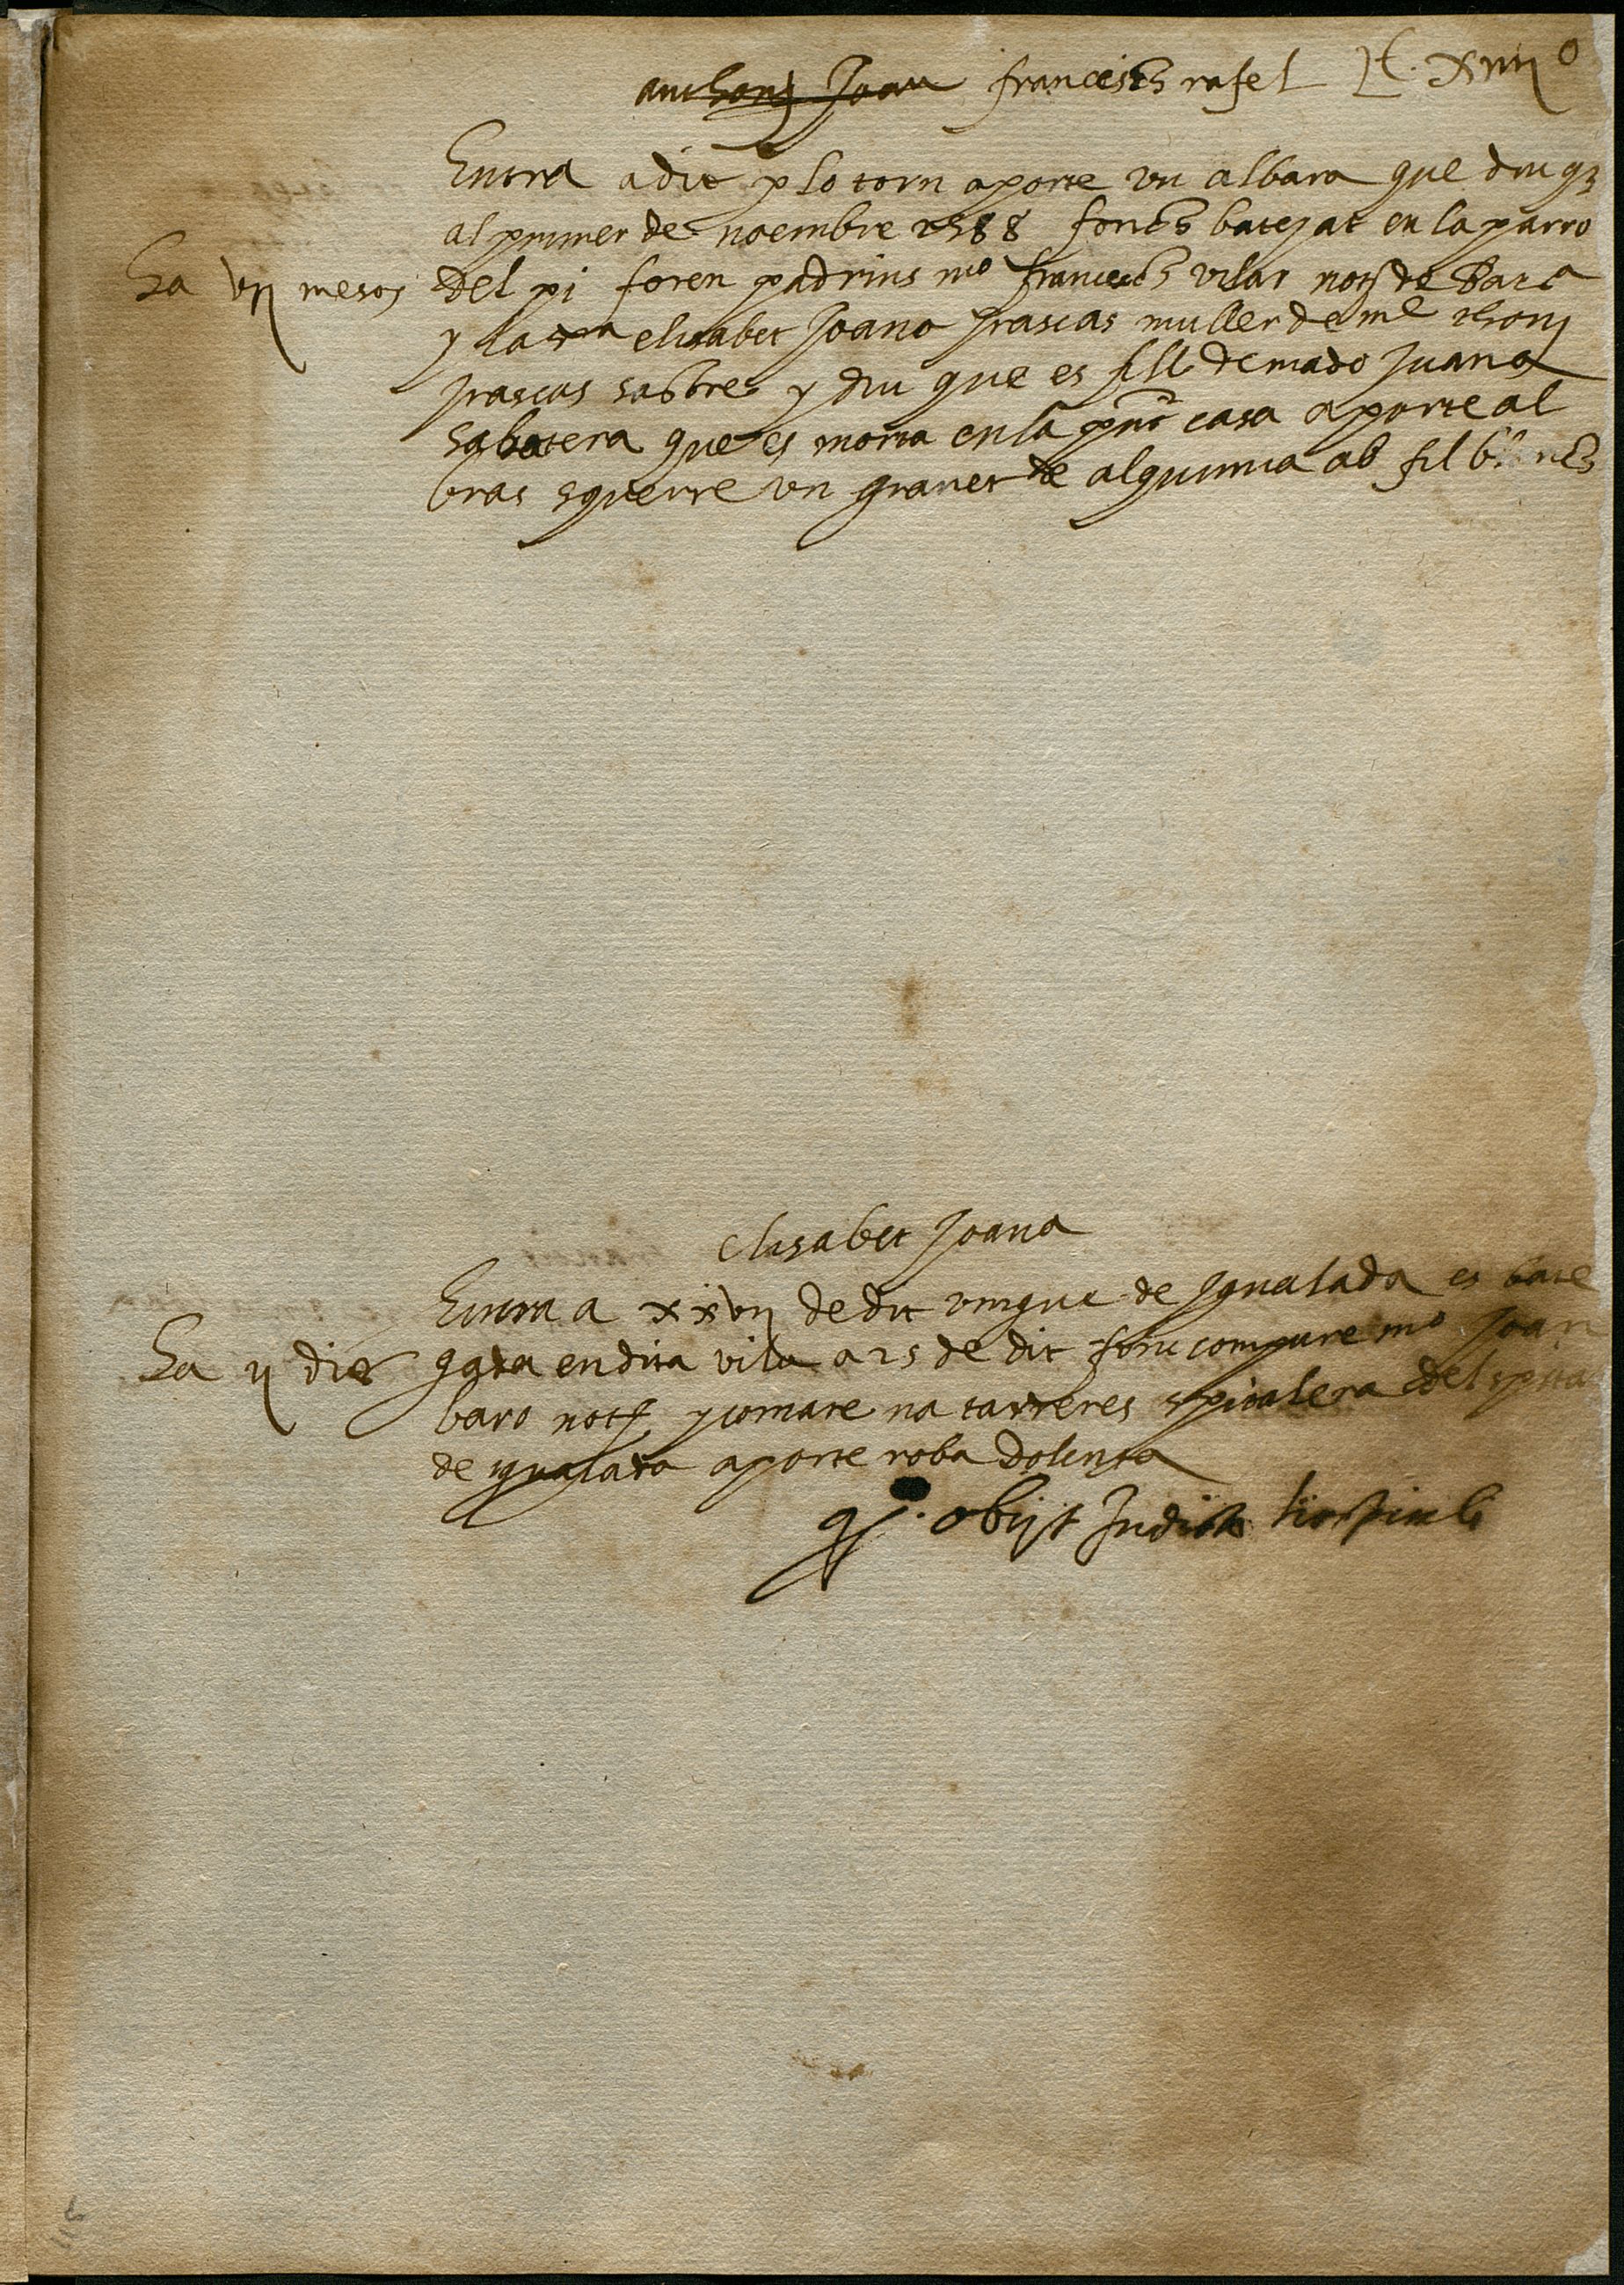 anthonj Joan francesch rafel Lxxiiijº
Entra a dit p lo torn aporte un albara que diu q
al primer de noembre 1588 fonch batejat en la parro
ha vij mesos del pi foren padrins mº francesch vilar notj de Barª
y la sra elisabet Joana prascas muller de me thonj
prascas sastre y diu que es fill de mado Juana
sabatera que es morta en la pnt casa aporte al
bras squerre un granet de alquimia ab fil
Elisabet Joana
Entra a xxvij de dit vingue de Igualada es bate
ha ij dies gada en dita vila a 25 de dit fonc compare mº Joan
baro notj y comare na tarreres spitalera del spita
de igualada aporte roba dolenta
obijt In dicta